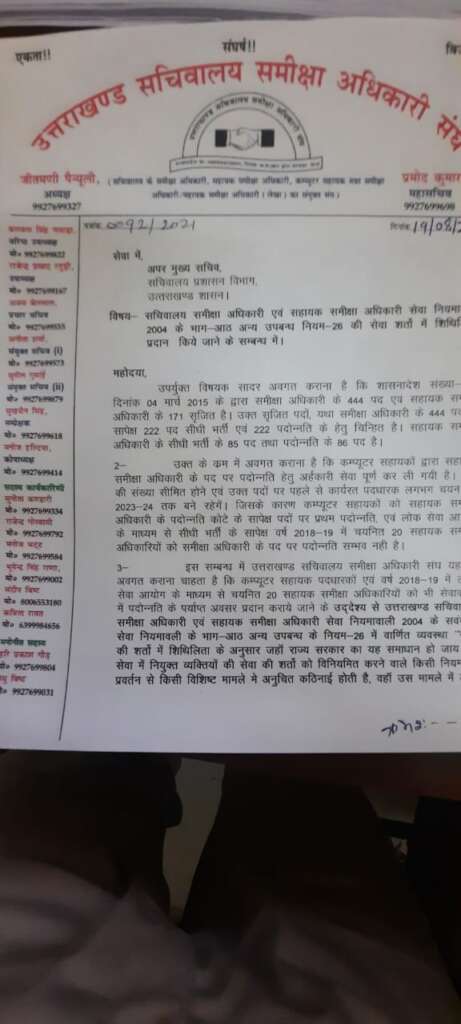 एकता!!
संघर्ष!!
उत्तराखण्ड सचिवालय समीक्षा अधिकारी संघ
जीतमणी पैन्यूली,
अध्यक्ष
9927699327
(सचिवालय के समीक्षा अधिकारी, सहायक समीक्षा अधिकारी, कम्प्यूटर सहायक तथा समीक्षा
अधिकारी/सहायक समीक्षा अधिकारी (लेखा) का संयुक्त संघ)
प्रमोद कुमार
महासचिव
9927699698
पत्रांक 0092/2021
दिनांक 19/0
वरिष्ठ उपाध्यक्ष
मो० 9927699822
उपाध्यक्ष
मो० 9927699167
प्रचार सचिव
मो० 9927699535
संयुक्त सचिव (i)
मो० 9927699573
संयुक्त सचिव (ii)
मो० 9927699679
सम्प्रेक्षक
मो० 9927699618
कोषाध्यक्ष
मो० 9927699414
सदस्य कार्यकारिणी
मो० 9927699334
राजेन्द्र गोस्वामी
मो० 9927699792
मो० 9927699584
मो० 9927699002
संदीप बिष्ट
मो० 8006553180
कविता रावत
मो० 6399984656
मनोनीत सदस्य
हरि प्रकाश गौड़
मो० 9927699804
बिष्ट
मो० 9927699031
सेवा में,
अपर मुख्य सचिव,
सचिवालय प्रशासन विभाग,
उत्तराखण्ड शासन।
विषय– सचिवालय समीक्षा अधिकारी एवं सहायक समीक्षा अधिकारी सेवा नियमा
2004 के भाग–आठ अन्य उपबन्ध नियम–26 की सेवा शर्तो में शिथि
प्रदान किये जाने के सम्बन्ध में।
महोदया,
उपर्युक्त विषयक सादर अवगत कराना है कि शासनादेश संख्या–
दिनांक 04 मार्च 2015 के द्वारा समीक्षा अधिकारी के 444 पद एवं सहायक सम
अधिकारी के 171 सृजित है। उक्त सृजित पदों, यथा समीक्षा अधिकारी के 444 पद
सापेक्ष 222 पद सीधी भर्ती एवं 222 पदोन्नति के हेतु चिन्हित है। सहायक सम
अधिकारी के सीधी भर्ती के 85 पद तथा पदोन्नति के 86 पद है।
2– उक्त के कम में अवगत कराना है कि कम्प्यूटर सहायकों द्वारा सहा
समीक्षा अधिकारी के पद पर पदोन्नति हेतु अर्हकारी सेवा पूर्ण कर ली गयी है।
की संख्या सीमित होने एवं उक्त पदों पर पहले से कार्यरत पदधारक लगभग चयन
2023–24 तक बने रहेगें। जिसके कारण कम्प्यूटर सहायकों को सहायक सम
अधिकारी कोटे के पदोन्नति कोटे के सापेक्ष पदों पर प्रथम पदोन्नति, एवं लोक सेवा आ
के माध्यम से सीधी भर्ती के सापेक्ष वर्ष 2018–19 में चयनित 20 सहायक सम
अधिकारियों को समीक्षा अधिकारी के पद पर पदोन्नति सम्भव नही है।
3– इस सम्बन्ध में उत्तराखण्ड सचिवालय समीक्षा अधिकारी संघ यह
अवगत कराना चाहता है कि कम्प्यूटर सहायक पदधारकों एवं वर्ष 2018–19 में ल
सेवा आयोग के माध्यम से चयनित 20 सहायक समीक्षा अधिकारियों को भी सेवाक
में पदोन्नति के पर्याप्त अवसर प्रदान कराये जाने के उद्देश्य से उत्तराखण्ड सचिवा
समीक्षा अधिकारी एवं सहायक समीक्षा अधिकारी सेवा नियमावली 2004 के सव
सेवा नियमावली के भाग–आठ अन्य उपबन्ध के नियम–26 में वार्णित व्यवस्था "
की शर्तो में शिथिलिता के अनुसार जहॉ राज्य सरकार का यह समाधान हो जाय
सेवा में नियुक्त व्यक्तियों की सेवा की शर्तो को विनियमित करने वाले किसी नियम
प्रवर्तन से किसी विशिष्ट मामले मे अनुचित कठिनाई होती है, वहॉ उस मामले में